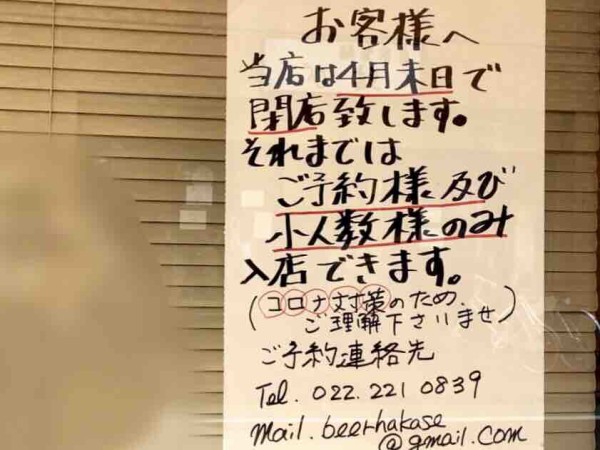 お客様へ
当店は4月末日で
閉店致します。
それまでは
ご予約様及び
小人数様のみ
入店できます。
(コロナ対策のため、
ご理解下さいませ)
ご予約連絡先
Tel. 022. 221 0839
mail. beerhakase
@gmail.com